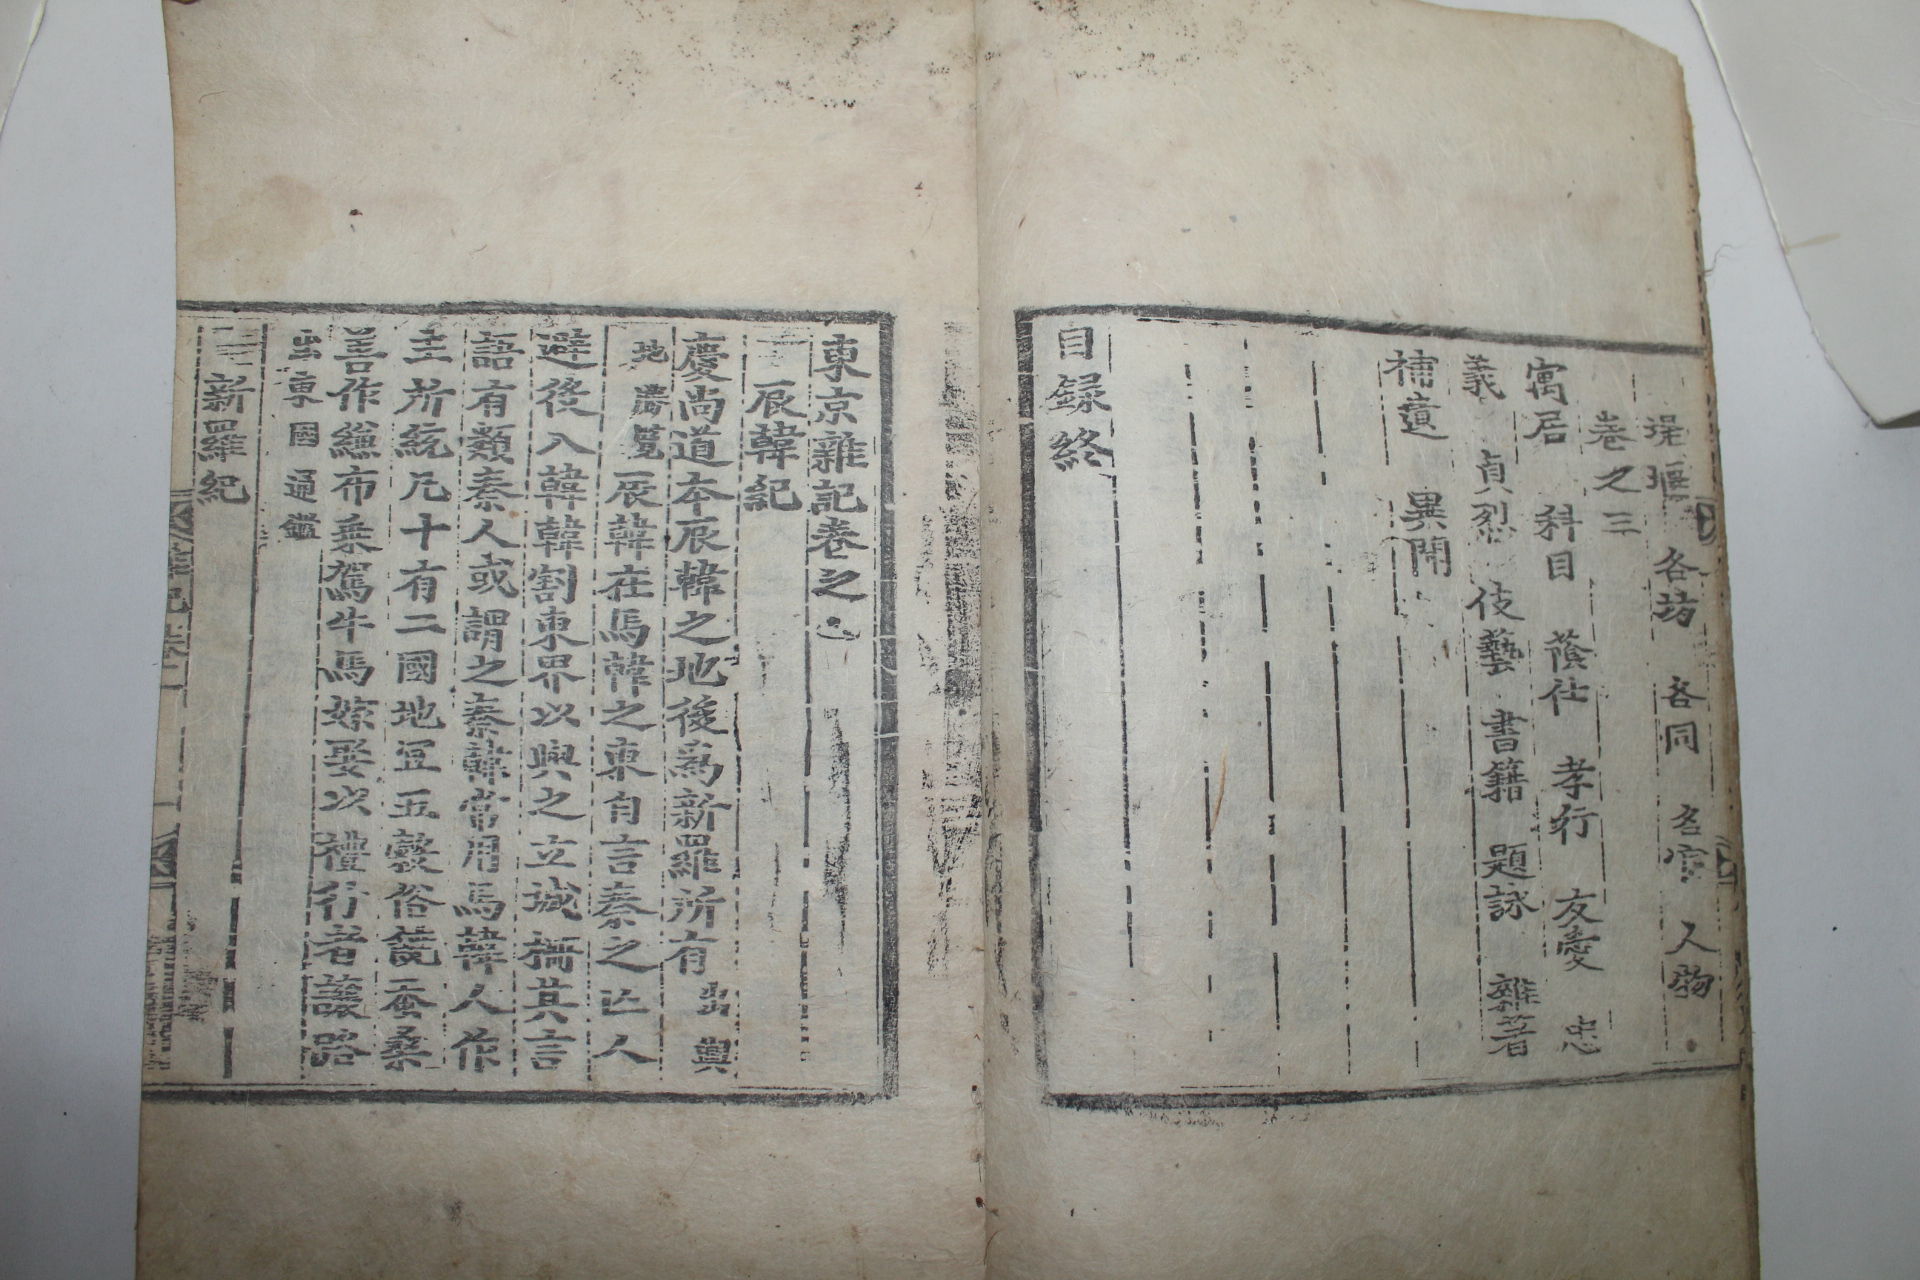 堤堰 各坊 各同 名官 人物
卷之三
寓居 科目 蔭仕 孝行 友愛 忠
義 貞烈 伎藝 書籍 題詠 雜著
補遺 異聞
目録終
東京雜記卷之
辰韓紀
慶尚道本辰韓之地後爲新羅所有出輿
地勝覧辰韓在馬韓之東自言秦之亡人
避後入韓韓割東界以與之立城柵其言
語有類秦人或謂之秦韓常用馬韓人作
主所統凡十有二國地宜五穀俗饒蚕桑
善作縑布乗駕牛馬嫁娶以禮行者讓路
出東國通鑑
新羅紀